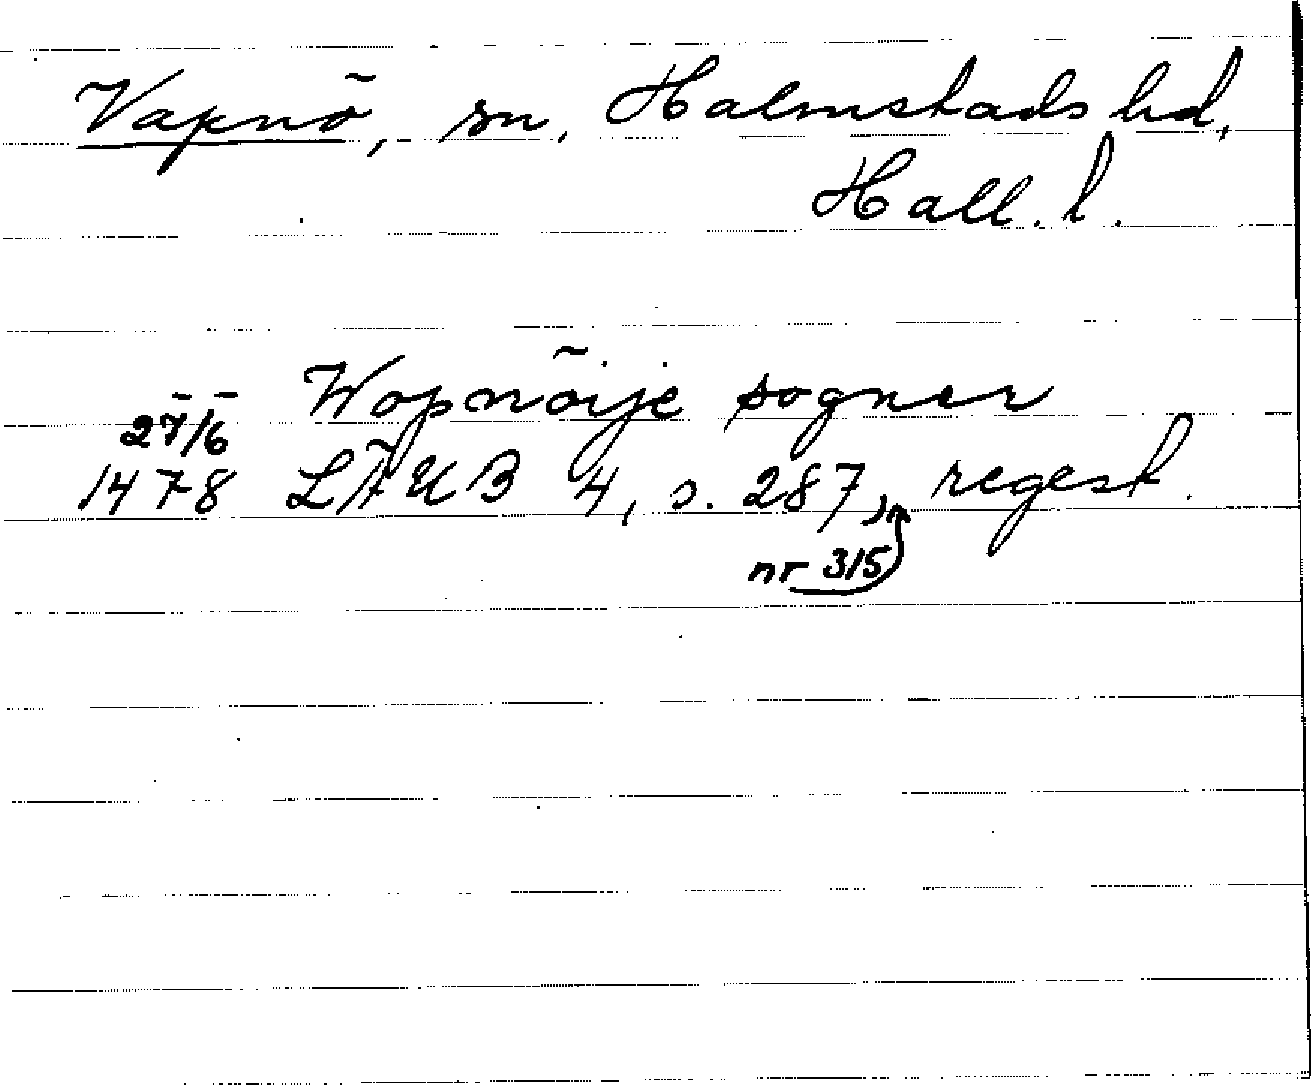 Vapnö, sn, Halmstads hd,
Hall. l.
Wopnöije sogner
27/6
1478 LÄUB 4, s. 287, regest.
nr 315